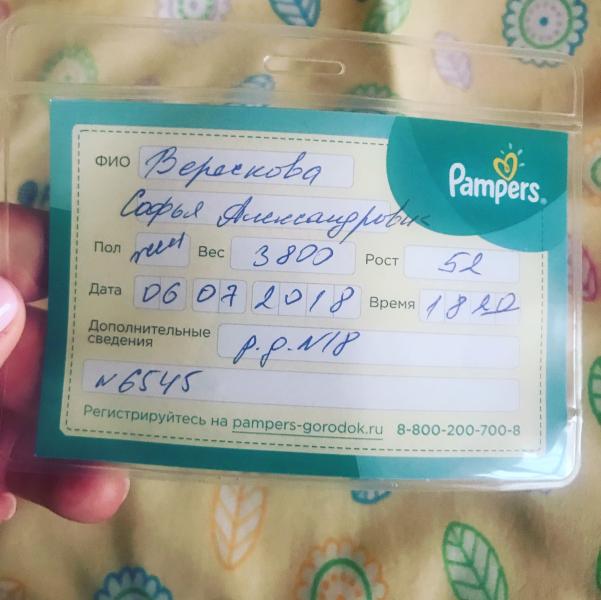 Pampers®
ФИО Верескова
Софья Александровн
Пол жен Вес 3800 Рост 52
Дата 06 07 2018 Время 1820
Дополнительные
сведения р.д.N18
N6545
Регистрируйтесь на pampers-gorodok.ru 8-800-200-700-8